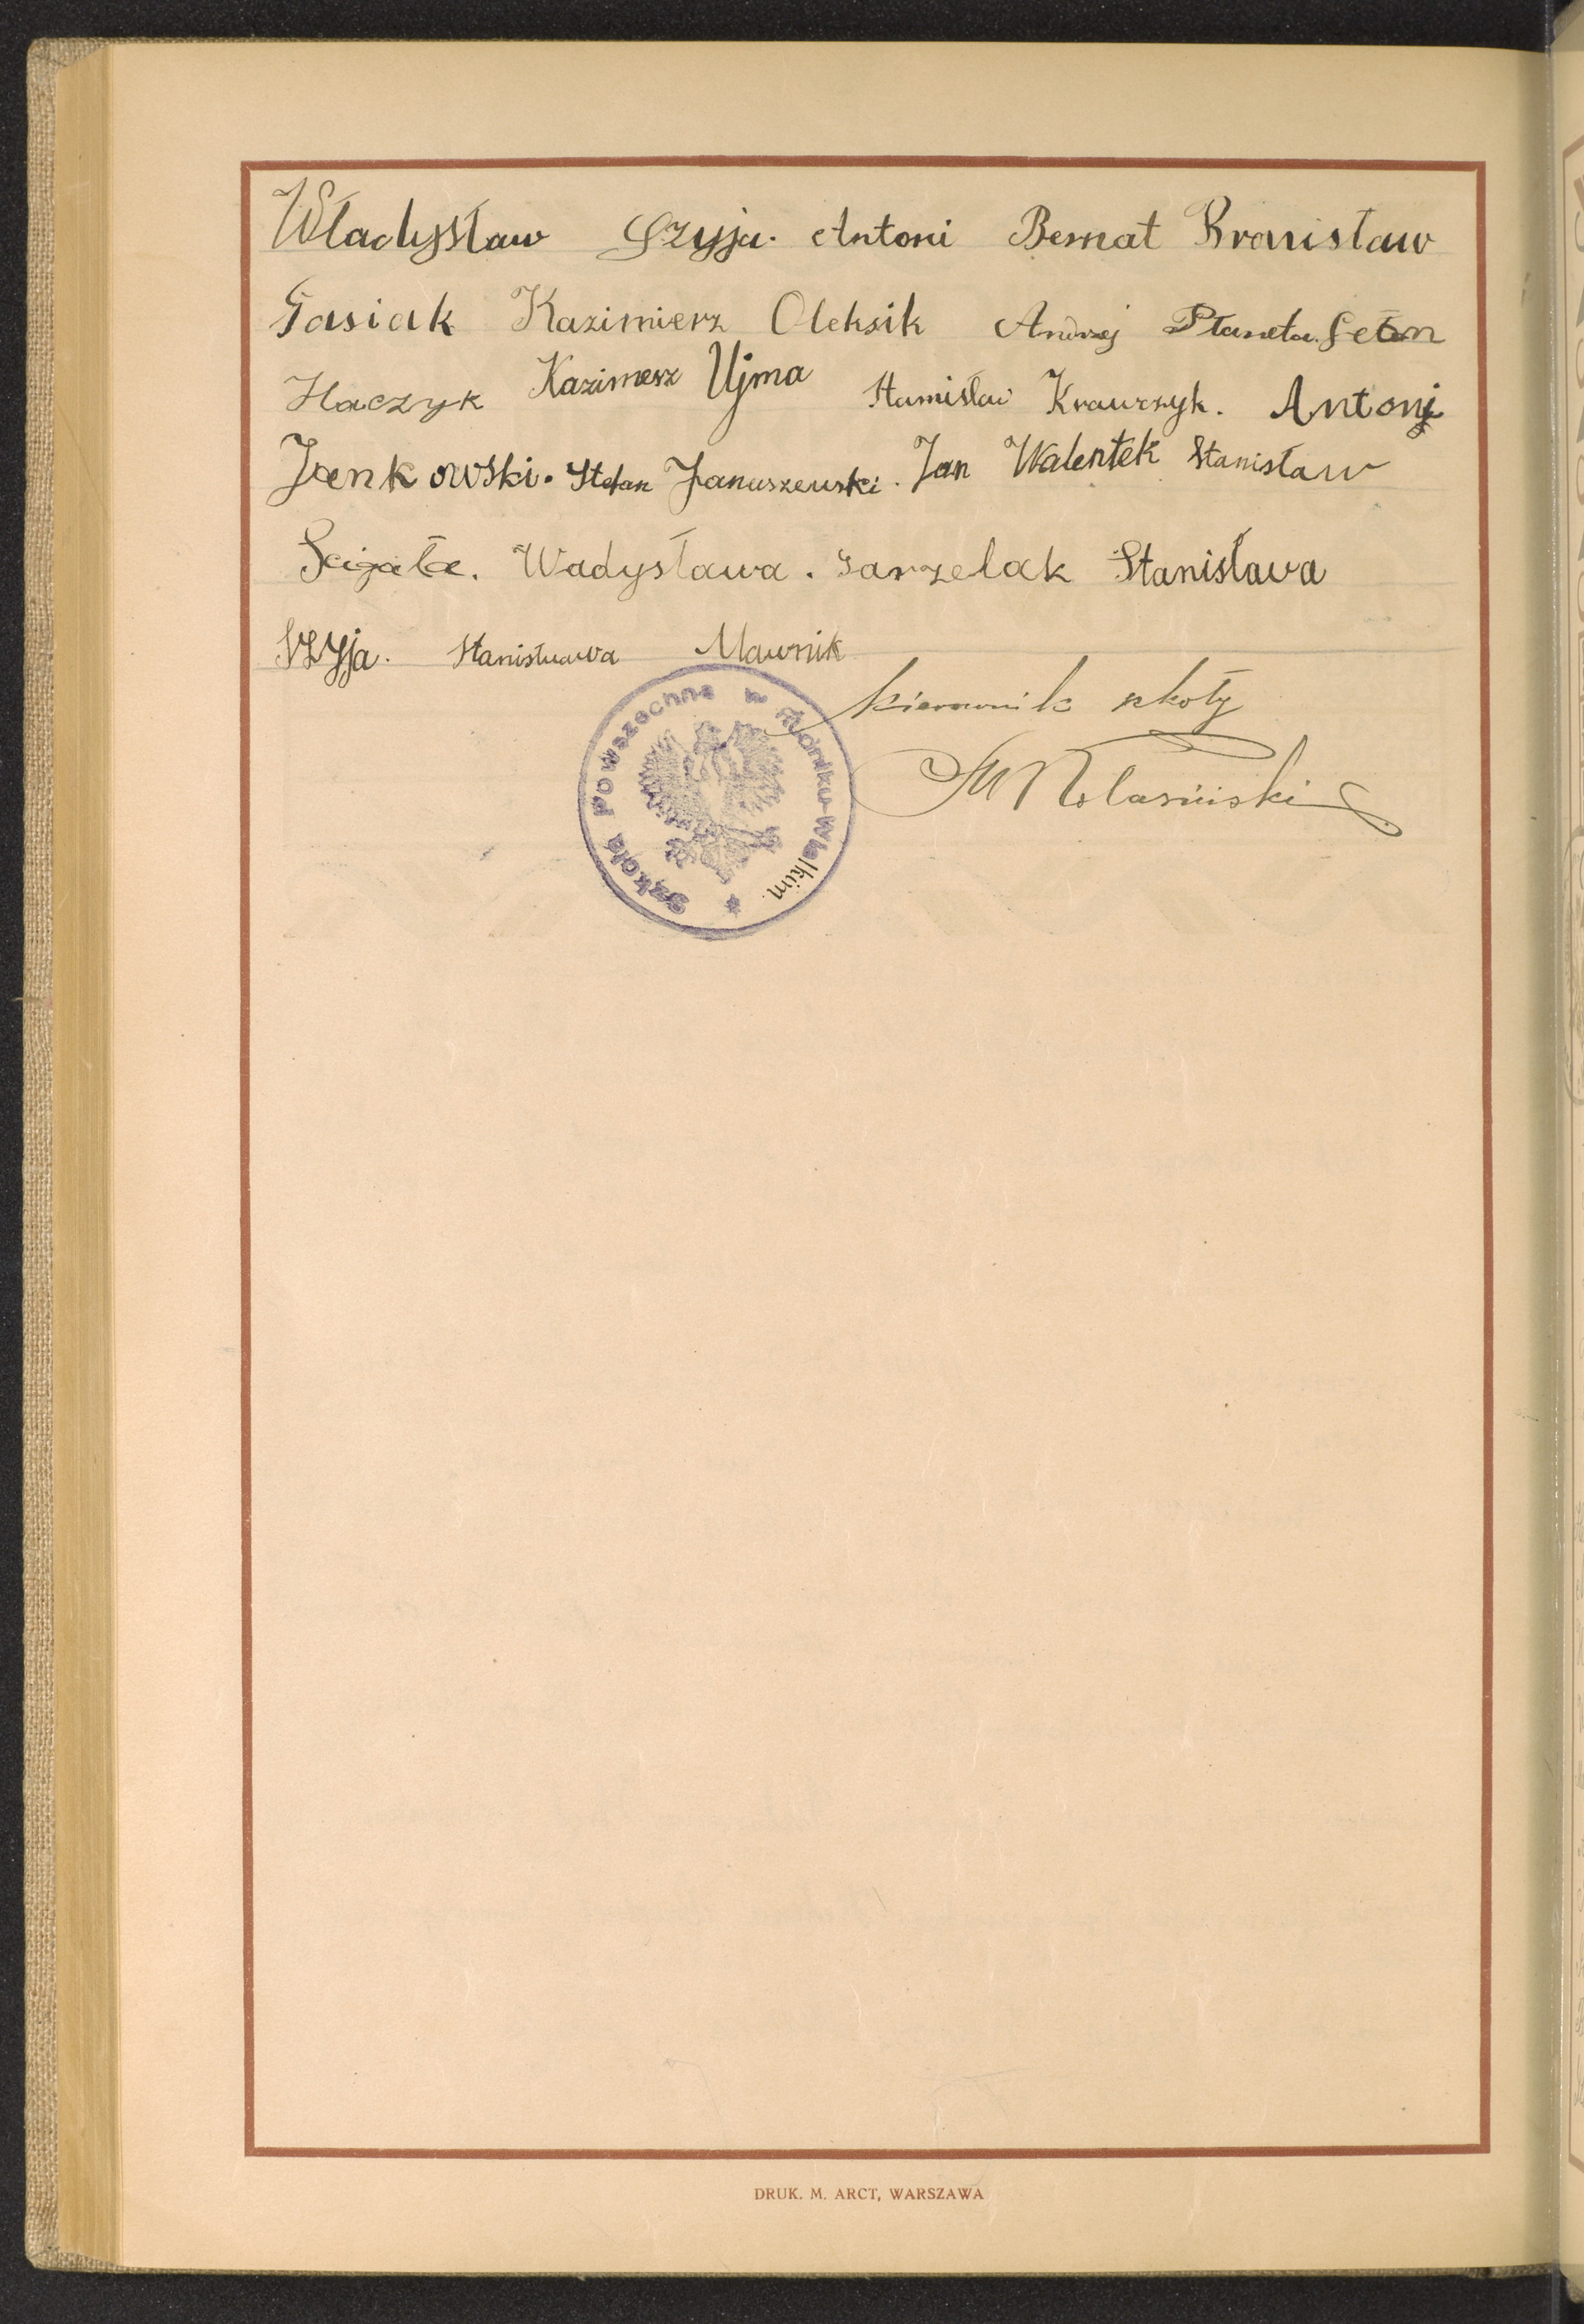 Władysław Szyja. Antoni Bernat Bronisław
Gasiak Kazimierz Oleksik Andrzej Płaneta. Leon
Haczyk Kazimierz Ujma Stanisław Krawczyk. Antoni
Jenkowski. Stefan Januszewski. Jan Walentek Stanisław
Ścigała. Wadysława. Garzelak Stanisława
Szyja. Stanisława Mawnik
kierownik szkoły
Szkoła Powszechna w
DRUK. M. ARCT, WARSZAWA